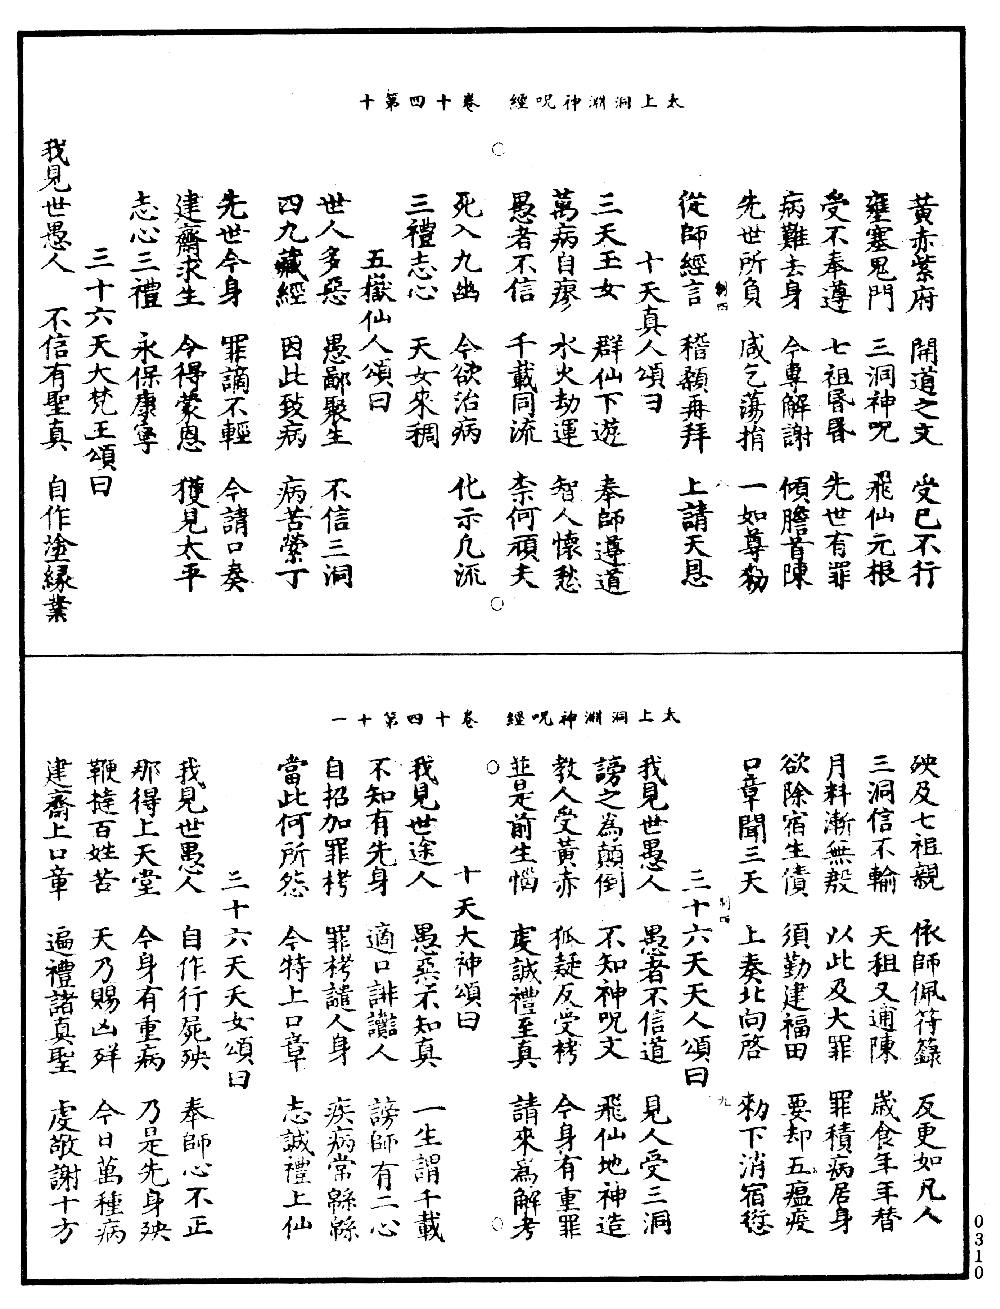 太上洞淵神呪經 卷十四第十
黃赤紫府 開道之文 受已不行
壅塞鬼門 三洞神呪 飛仙元根
受不奉遵 七祖昬昬 先世有罪
病難去身 今專解謝 傾膽首陳
先世所負 咸乞蕩捐 一如尊勑
從師經言 稽顙再拜 上請天恩
制四
十天真人頌曰
三天玉女 群仙下遊 奉師遵道
萬病自瘳 水火劫運 智人懷愁
愚者不信 千載同流 柰何頑夫
死入九幽 今欲治病 化示凡流
三禮志心 天女來稠
五嶽仙人頌曰
世人多惡 愚鄙聚生 不信三洞
四九藏經 因此致病 病苦縈丁
先世今身 罪謫不輕 今請口奏
建齋求生 令得蒙恩 獲見太平
志心三禮 永保康寧
三十六天大梵王頌曰
我見世愚人 不信有聖真 自作塗緣業
太上洞淵神呪經 卷十四第十一
殃及七祖親 依師佩符籙 反更如凡人
三洞信不輸 天租又逋陳 歲食年年替
月料漸無般 以此及大罪 罪積病居身
欲除宿生債 須勤建福田 要却五瘟疫
口章聞三天 上奏北向啓 勑下消宿愆
制四 九
三十六天天人頌曰
我見世愚人 愚者不信道 見人受三洞
謗之為顛倒 不知神呪文 飛仙地神造
教人受黃赤 狐疑反受栲 今身有重罪
並是前生惱 虔誠禮至真 請來為解考
十天大神頌曰
我見世途人 愚癡不知真 一生謂千載
不知有先身 適口誹讟人 謗師有二心
自招加罪栲 罪栲譴人身 疾病常緜緜
當此何所怨 今特上口章 志誠禮上仙
三十六天天女頌曰
我見世愚人 自作行屍殃 奉師心不正
那得上天堂 今身有重病 乃是先身殃
鞭撻百姓苦 天乃賜凶殃 今日萬種病
建齋上口章 遍禮諸真聖 虔敬謝十方
0310